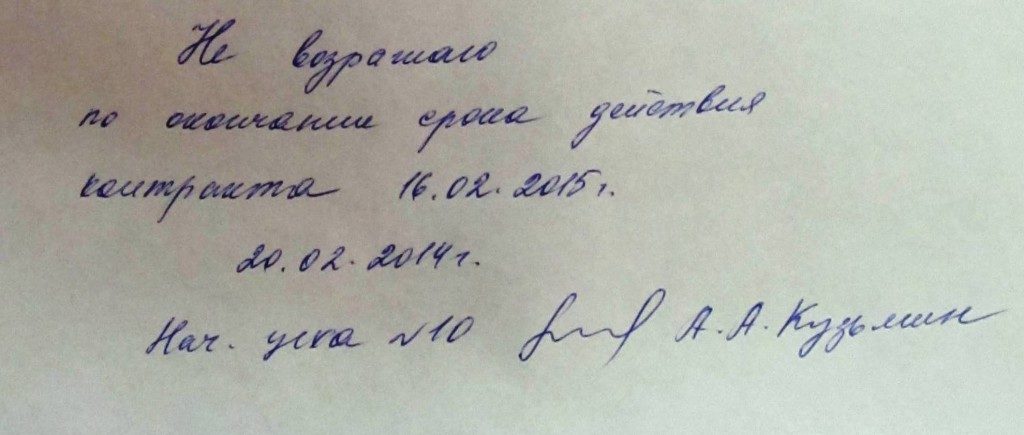 Не возрашаю
по окончании срока действия
контракта 16.02.2015г.
20.02.2014г.
Нач. уска №10 А.А.Кузьмин